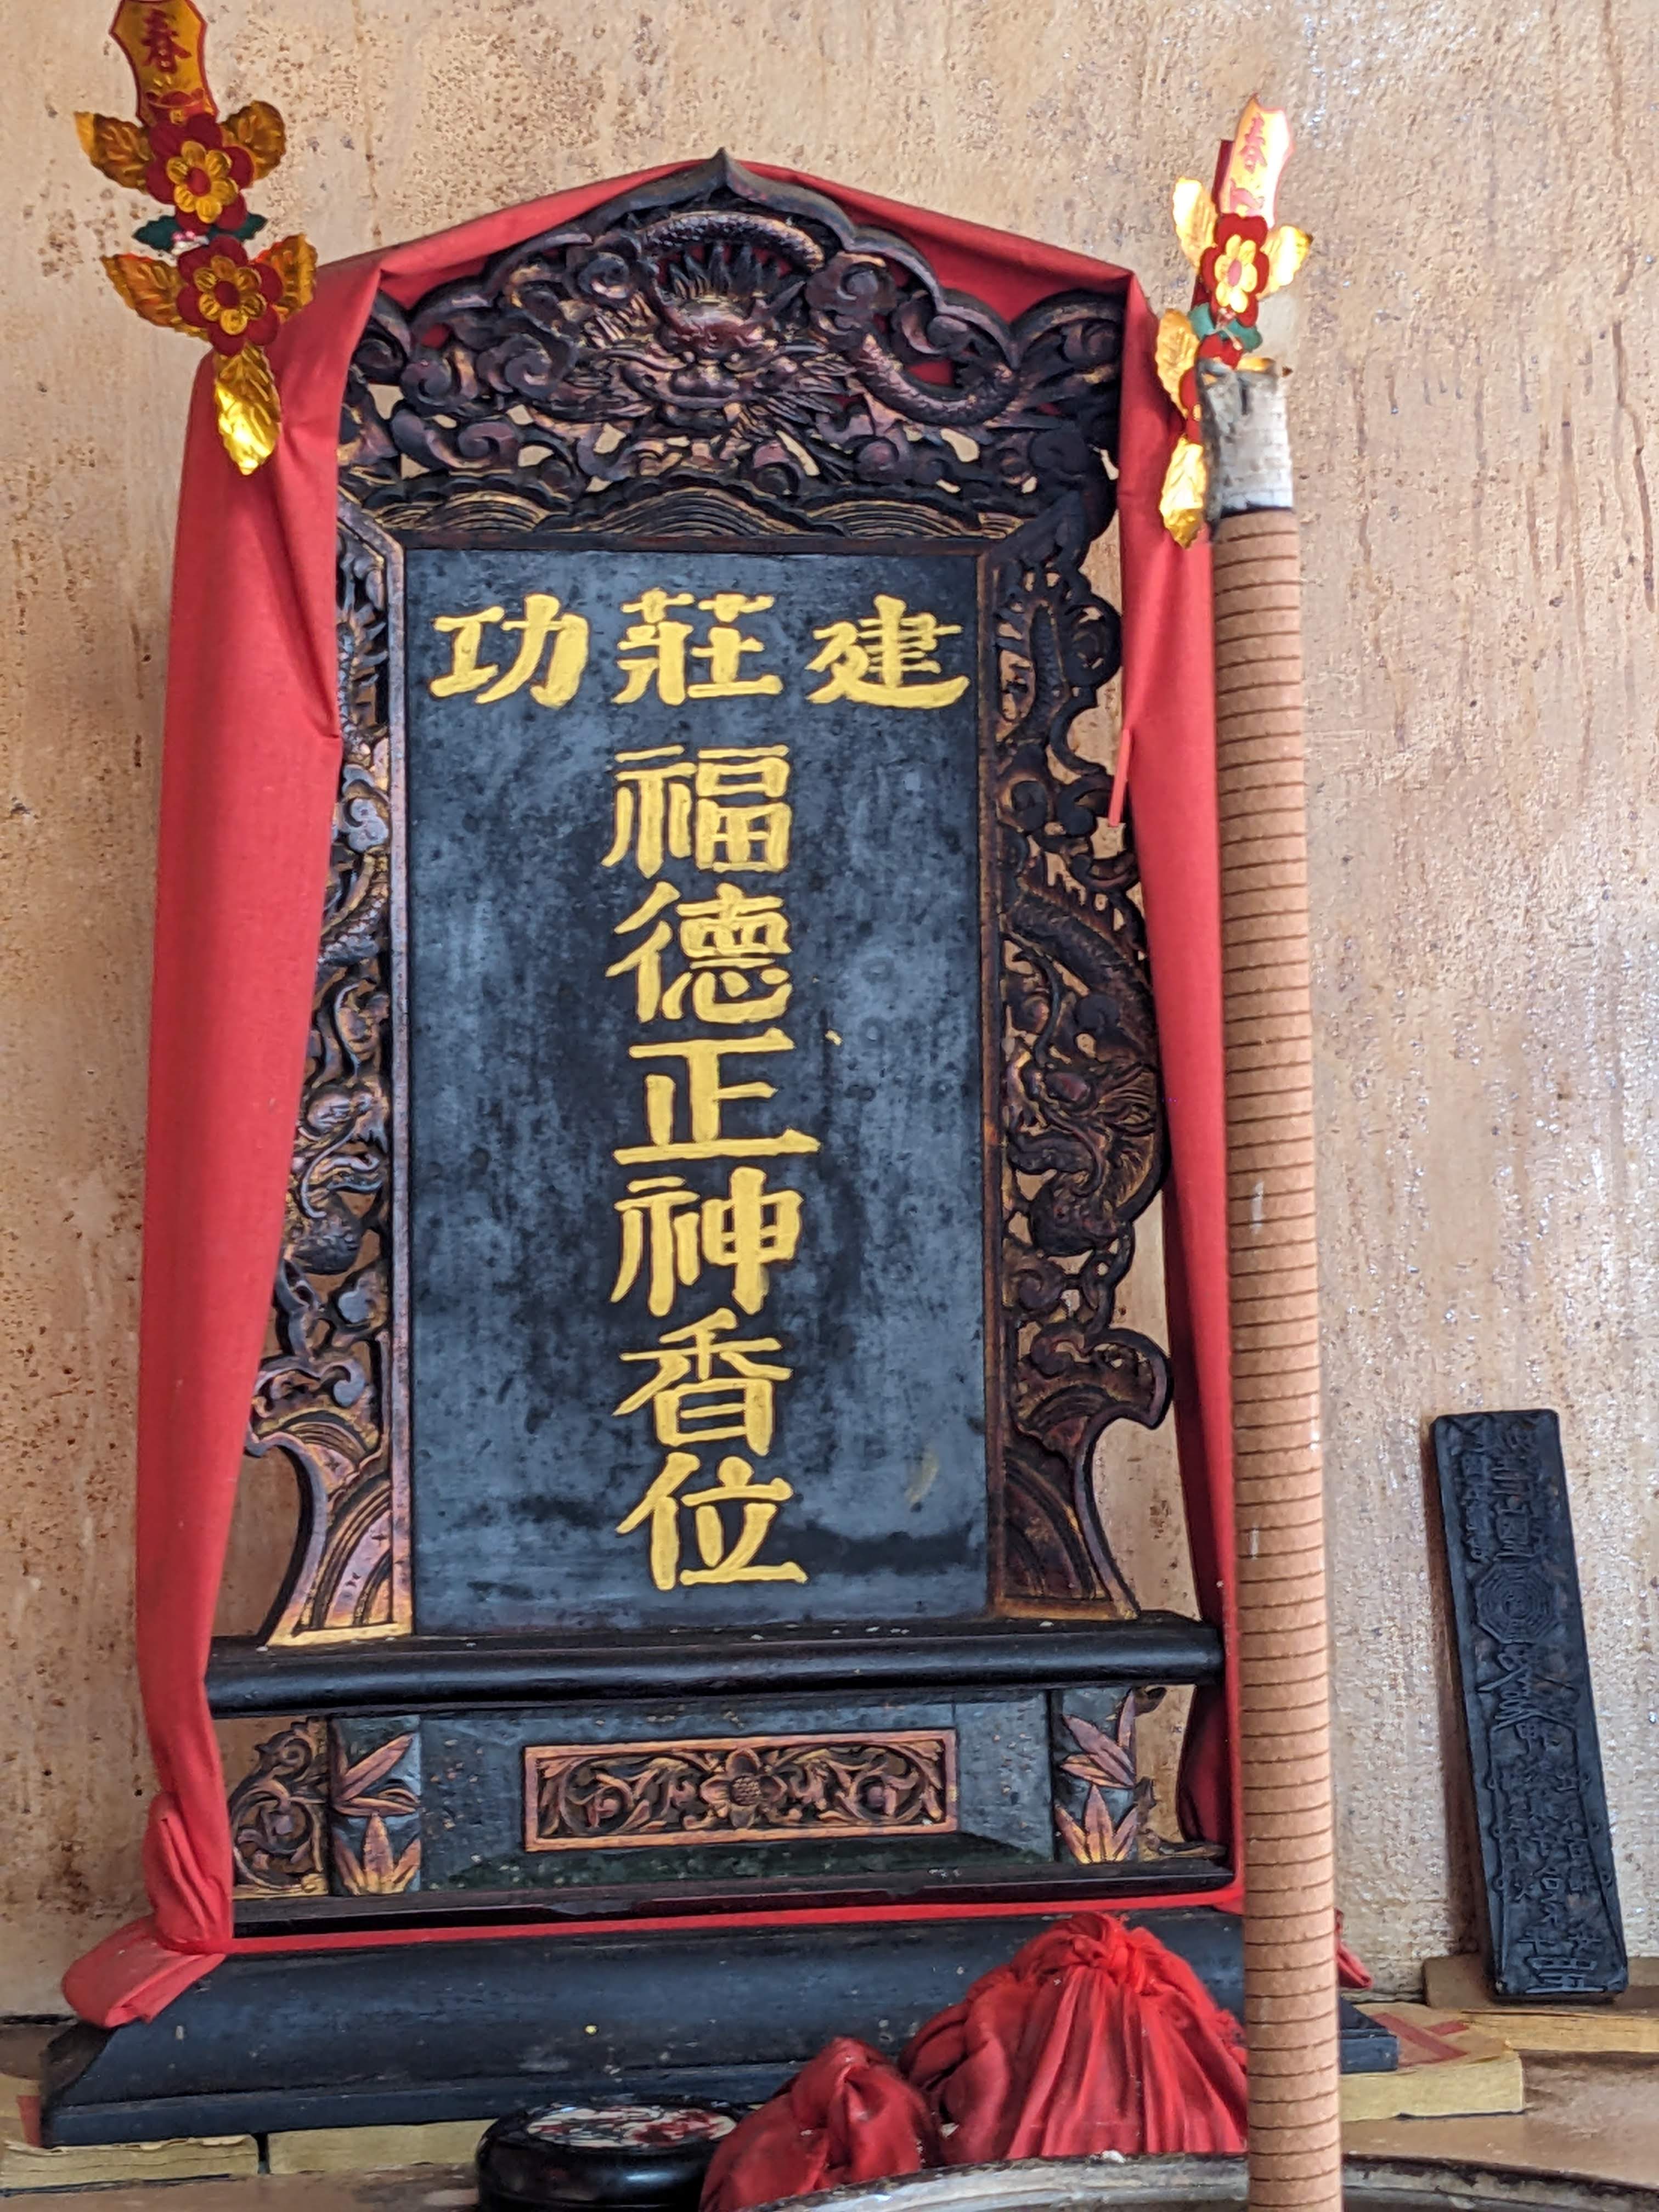 春
春
建莊功
福德正神香位